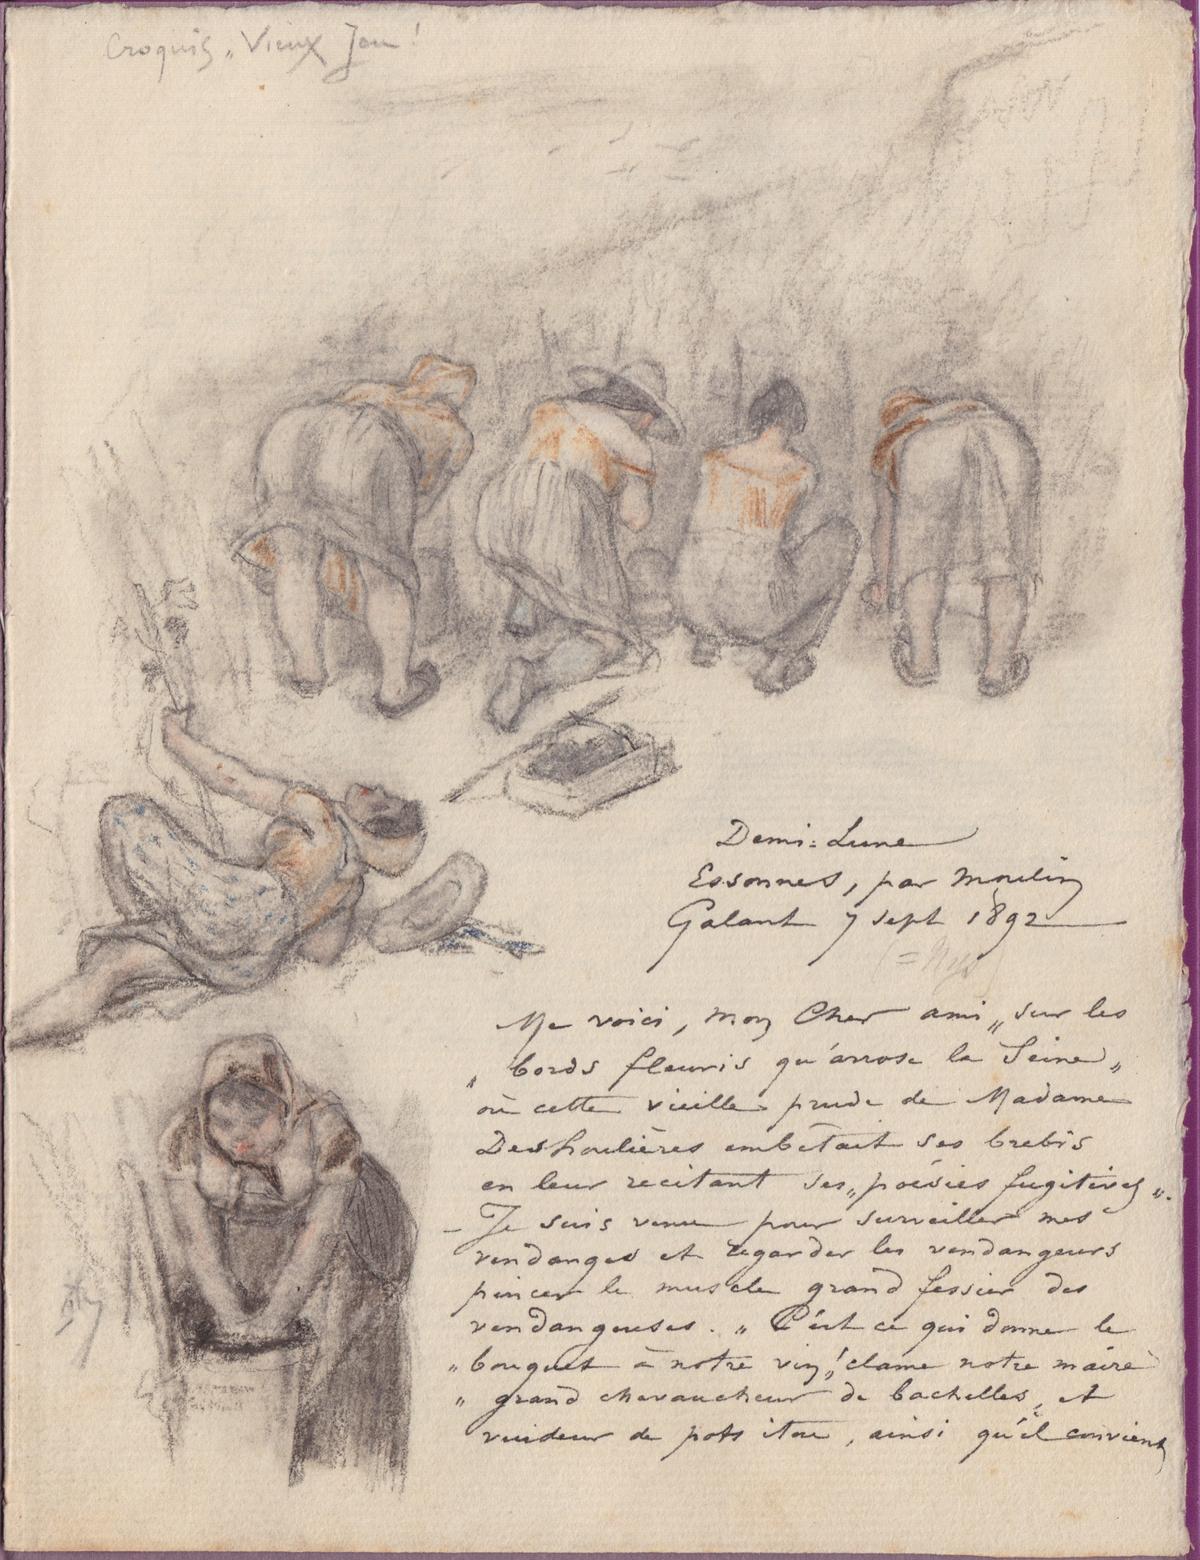 Croquis „ Vieux Jeu !
Demi-Lune
Essonnes, par Moulin
Galant 7 sept 1892
(= Nys)
Me voici, mon Cher ami „ sur les
„ bords fleuris qu'arrose la Seine „
où cette vieille prude de Madame
Deshoulières embêtait ses brebis
en leur recitant ses „ poésies fugitives „.
– Je suis venu pour surveiller mes
vendanges et regarder les vendangeurs
pincer le muscle grand fessier des
vendangeuses. „ C'est ce qui donne le
„ bouquet à notre vin ! clame notre maire
„ grand chevaucheur de bachelles, et
vuideur de pots itou, ainsi qu'il convient